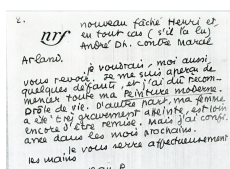 2.
nouveau fâché Henri et
nrf en tout cas (s'il l'a lu)
André Dh. contre Marcel
Arland.
Je voudrais, moi aussi
vous revoir. Je me suis aperçu de
quelques défauts, et j'ai dû recom-
mencer toute ma Peinture moderne.
Drôle de vie. D'autre part, ma femme
a été très gravement atteinte, est loin
encore d'être remise. Mais j'ai confi-
ance dans les mois prochains.
Je vous serre affectueusement
les mains